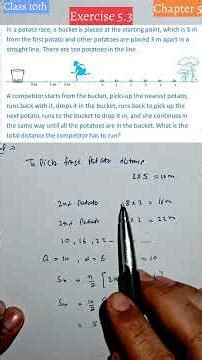 Class 10th
Chapter 5
Exercise 5.3
In a potato race, a bucket is placed at the starting point, which is 5 m
from the first potato and other potatoes are placed 3 m apart in a
straight line. There are ten potatoes in the line.
A competitor starts from the bucket, picks up the nearest potato,
runs back with it, drops it in the bucket, runs back to pick up the
next potato, runs to the bucket to drop it in, and she continues in
the same way until all the potatoes are in the bucket. What is the
total distance the competitor has to run?
To Pick first Potato distance
2×5 = 10m
2nd Potato 8×2 = 16m
3rd Potato ×2 = 22m
10, 16, 22
a = 10, d = 6 = 10